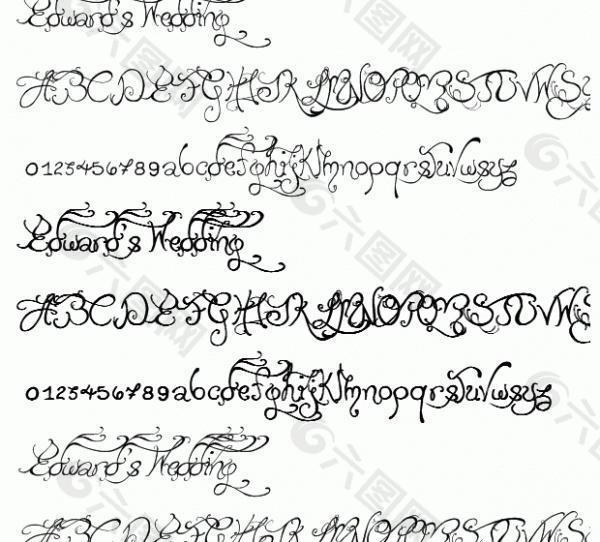 Edward's Wedding
ABCDEFGHIJKLMNOPQRSTUVWS
0123456789abcdefghijklmnopqrstuvwxyz
Edward's Wedding
ABCDEFGHIJKLMNOPQRSTUVWS
0123456789abcdefghijklmnopqrstuvwxyz
Edward's Wedding
ABCDEFGHIJKLMNOPQRSTUVWS
六图网